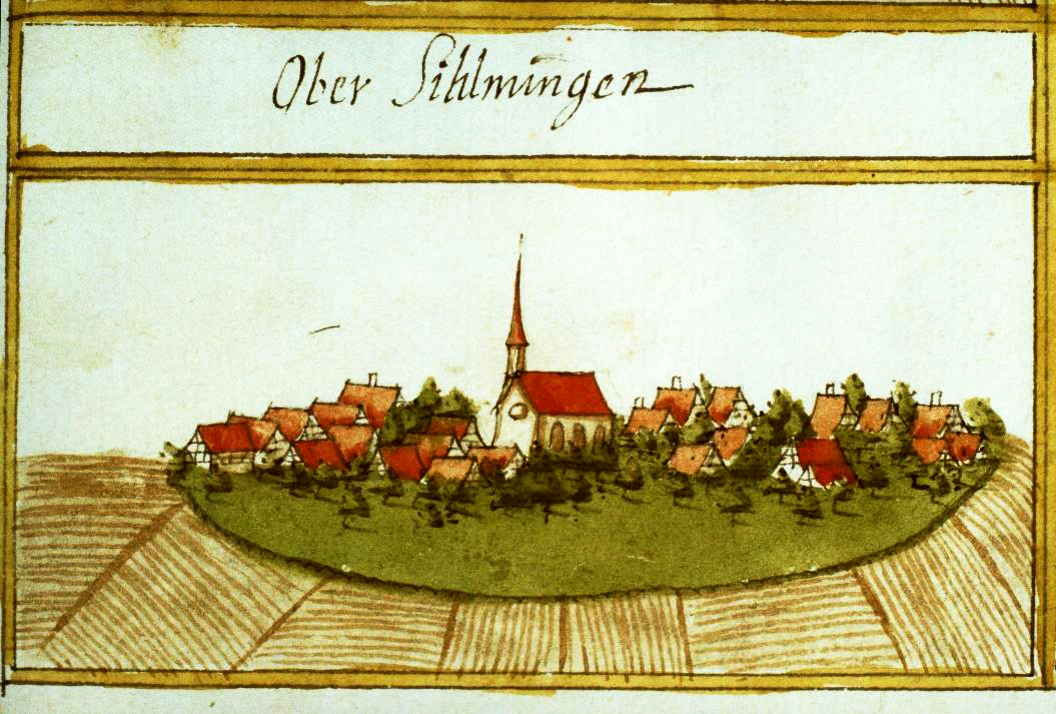 Ober Sihlmingen